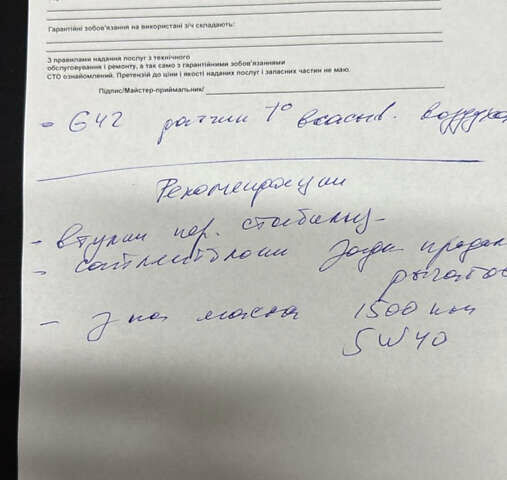 Гарантійні зобов'язання на використані з/ч складають:
З правилами надання послуг з технічного
обслуговування і ремонту, а так само з гарантійними зобов'язаннями
СТО ознайомлений. Претензій до ціни і якості наданих послуг і запасних частин не маю.
Підпис/Майстер-приймальник/
- G42 датчик t° всасыв. воздуха
Рекомендации
- втулки пер. стабилиз-
- сайлентблоки задн продол
рычагов
- з на масла 1500 км
5W40